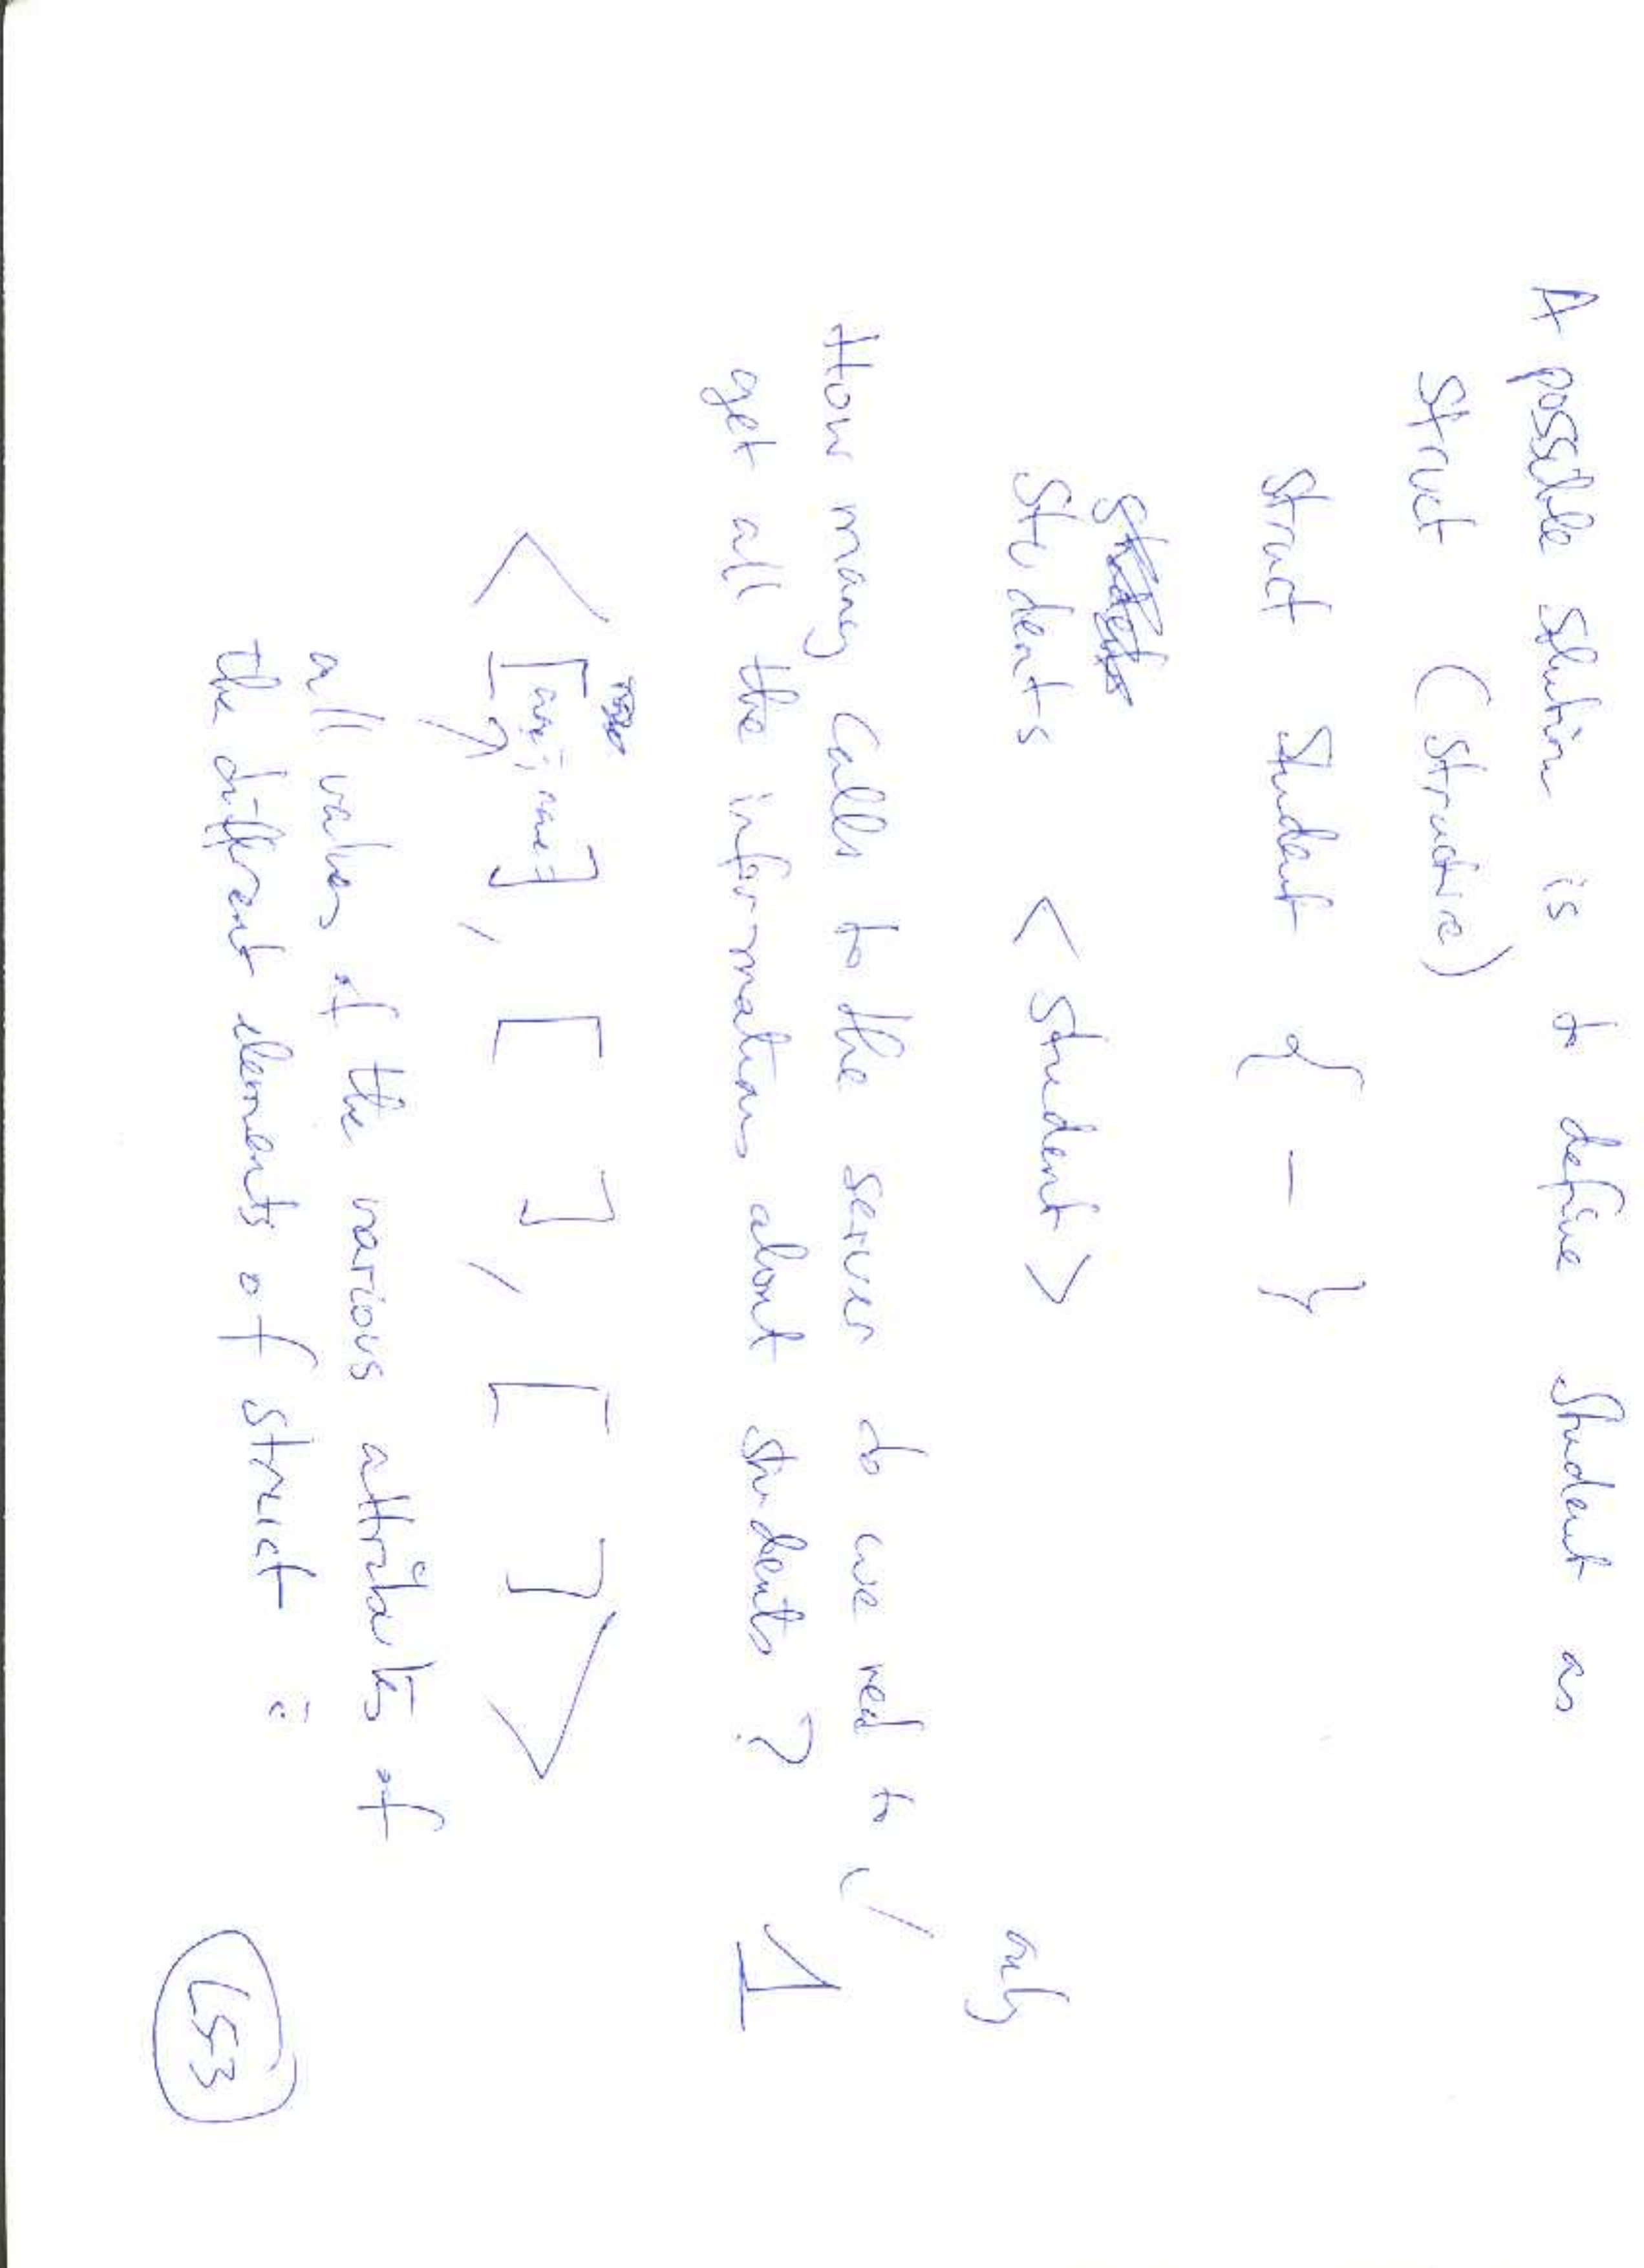 A possible solution is to define Student as
Struct (Structure)
Struct Student { - }
Students < Student >
only
How many calls to the server do we need to
get all the informations about students ? 1
< [ ] , [ ] , [ ] >
all values of the various attributes of
the different elements of struct
L53